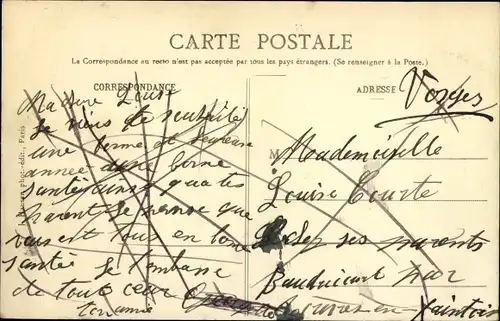 CARTE POSTALE
La Correspondance au recto n'est pas acceptée par tous les pays étrangers. (Se renseigner à la Poste.)
CORRESPONDANCE
Je viens de souhaité
une bonne et heureuse
année une bonne
santé ainsi qua tes
parent Je pense que
vous est tous en bone
santé Je tombrasse
de tout cœur
ton amie
phot.-édit., Paris
ADRESSE
Vosges
M Mademoiselle
Louise Courte
ses parents
Bauduicourt par
en Saintois